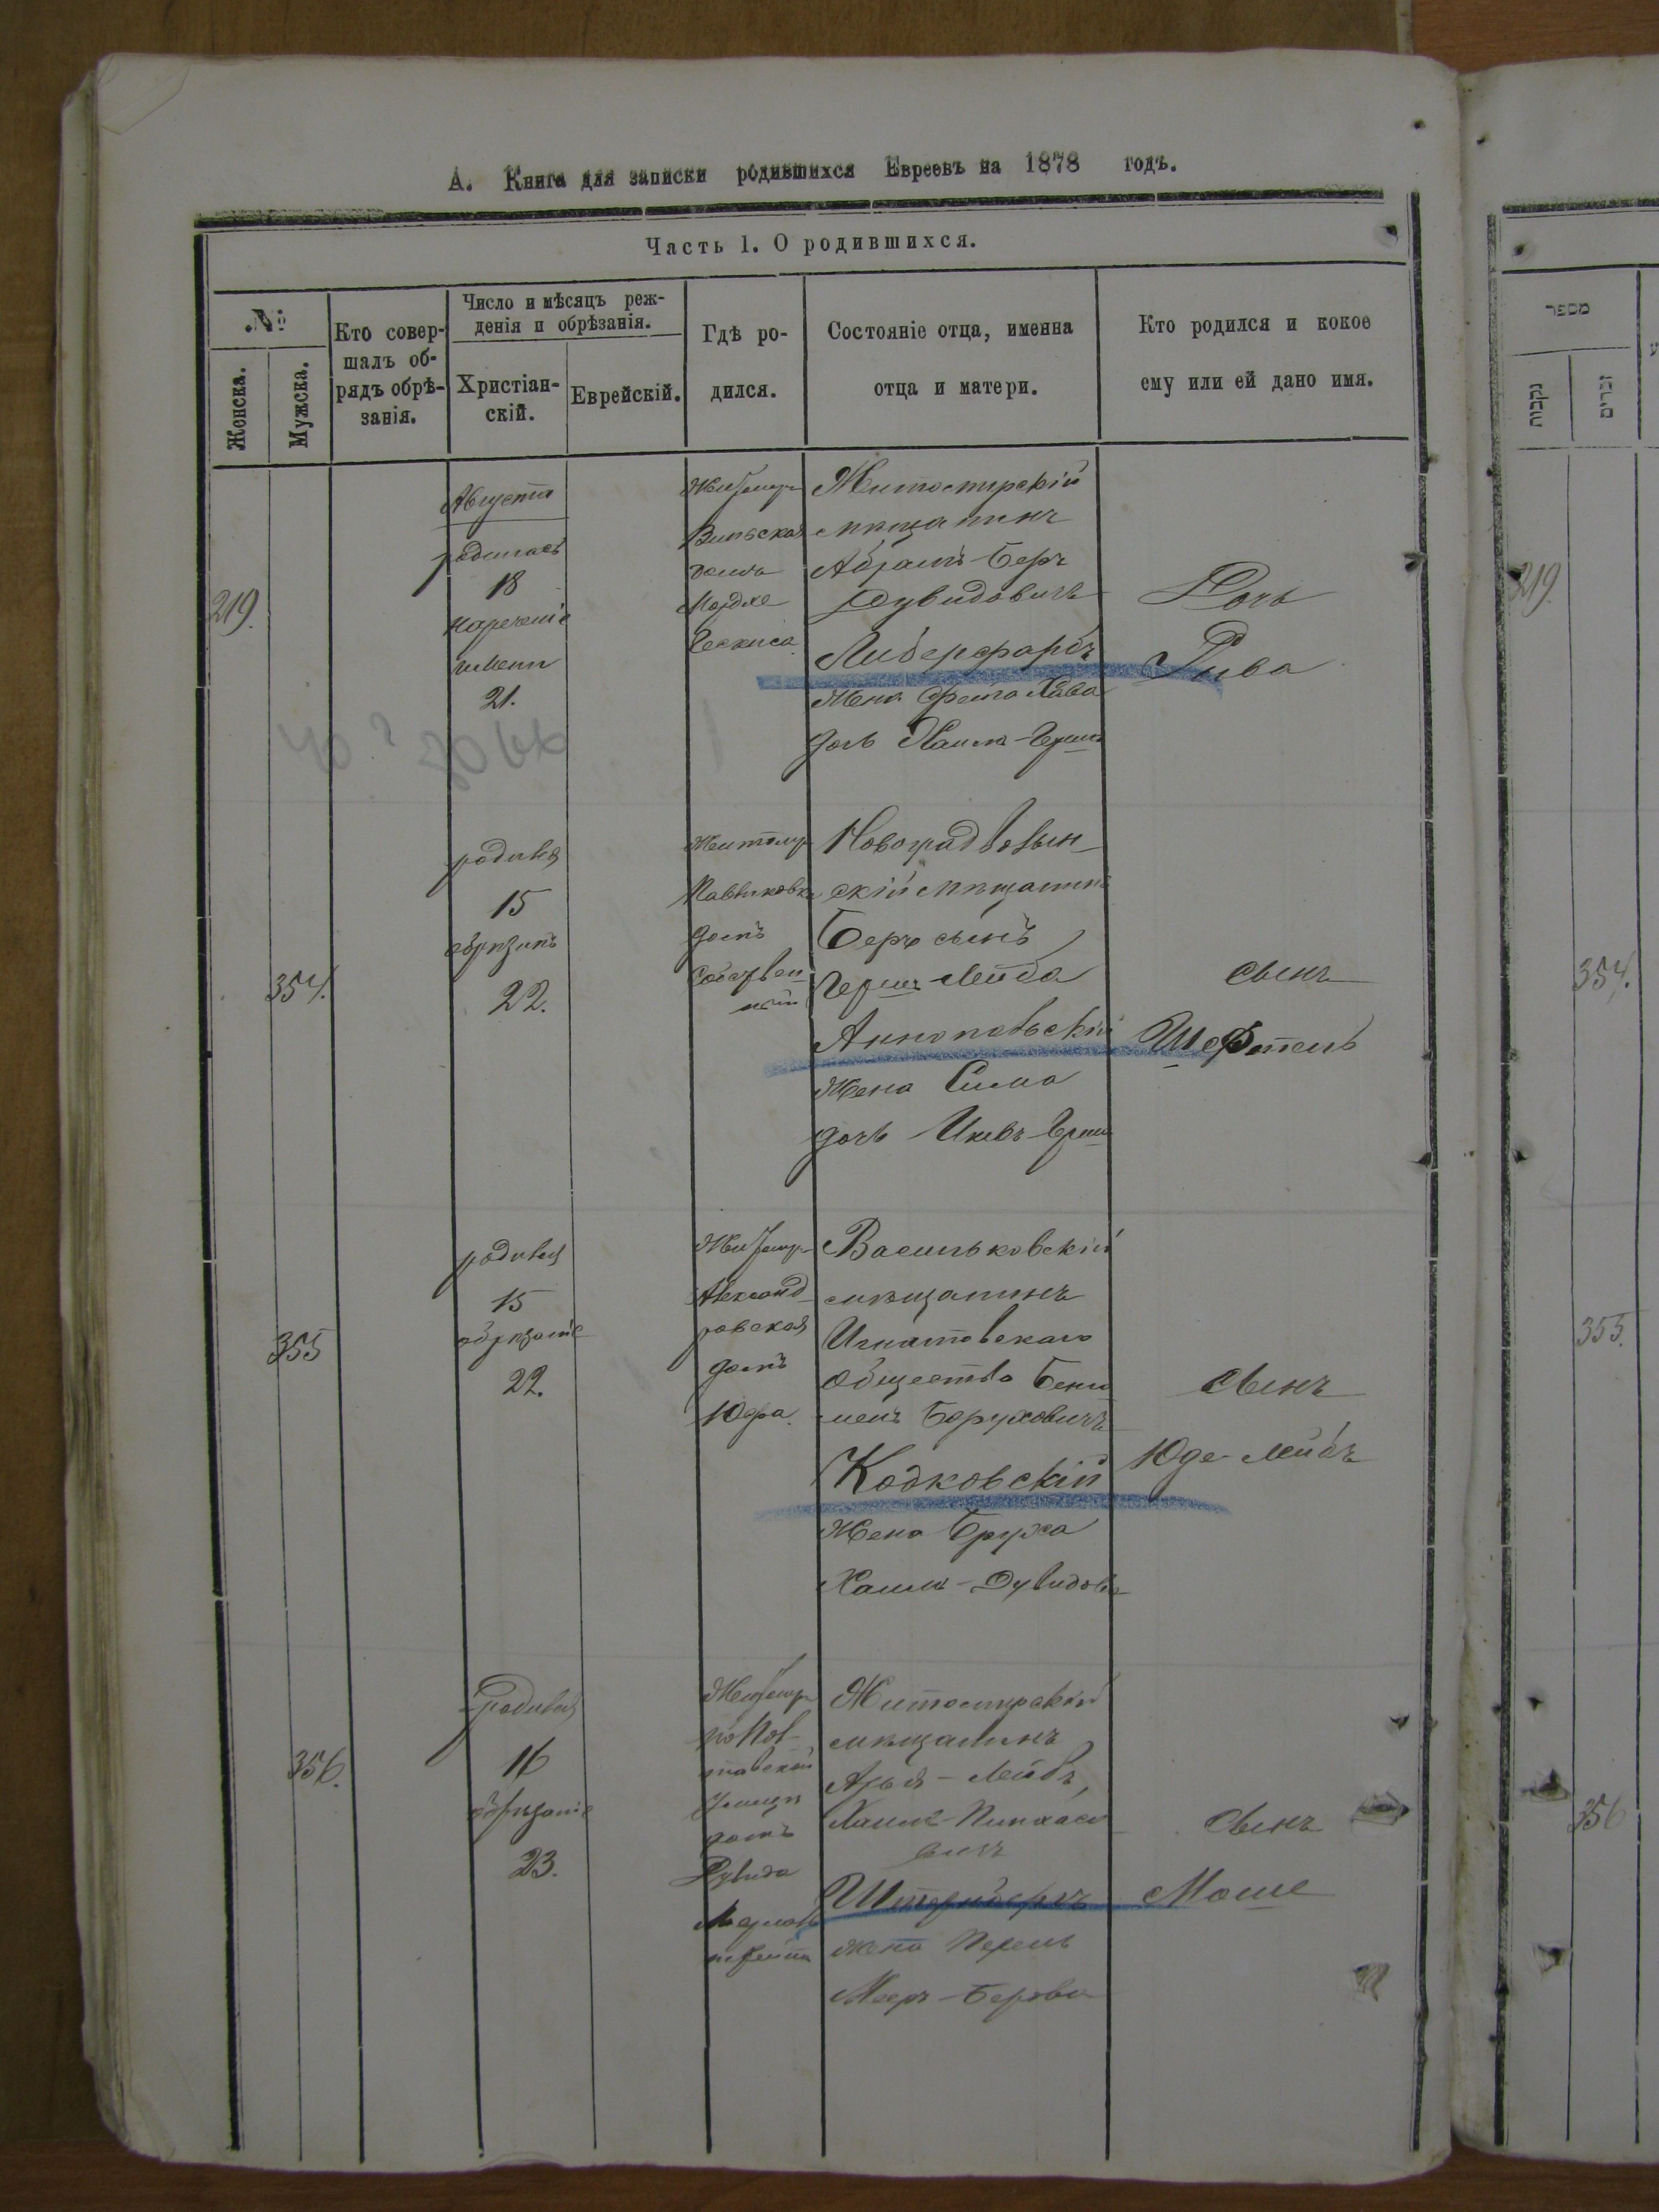 А. Книга для записки родившихся Евреевъ на 1878 годъ.
Часть 1. О родившихся.
№
Женска.
Мужска.
Кто совер-
шалъ об-
рядъ обрѣ-
занія.
Число и мѣсяцъ реж-
денія и обрѣзанія.
Христіан-
скій.
Еврейскій.
Гдѣ ро-
дился.
Состояніе отца, именна
отца и матери.
Кто родился и кокое
ему или ей дано имя.
219.
Августа
родилась
18
нареченіе
имени
21.
Житомир
Вильская
домъ
Житомирскій
мѣщанинъ
Абрамъ-Беръ
Дувидовичъ
Либерфарбъ
Жена Фрейга Хава
дочь Хаимъ-Герша
Дочь
Рива
354.
родился
15
обрѣзанъ
22.
Житомир
домъ
Собствен
ный
Новоградволын-
скій мѣщанинъ
Беръ сынъ
Гершъ Лейба
Аннопольскій
Жена Сима
дочь Ицекъ-Герша
сынъ
Шефтель
355
родился
15
обрѣзаніе
22.
Житомир
Александ
ровская
домъ
Васильковскій
мѣщанинъ
Игнатовскаго
общества Бенія
минъ Боруховичъ
Кодковскій
Жена Бруха
Хаимъ-Дувидова
сынъ
Юде-Лейбъ
356.
родился
16
обрѣзаніе
23.
Житомир
по Пол-
тавской
улицѣ
домъ
Дувида
Житомирскій
мѣщанинъ
Арья-Лейбъ
Хаимъ-Пинхасо
вичъ
жена Перель
Мееръ-Берова
сынъ
Моше
מספר
נקבות
זכרים
219.
354.
355.
356